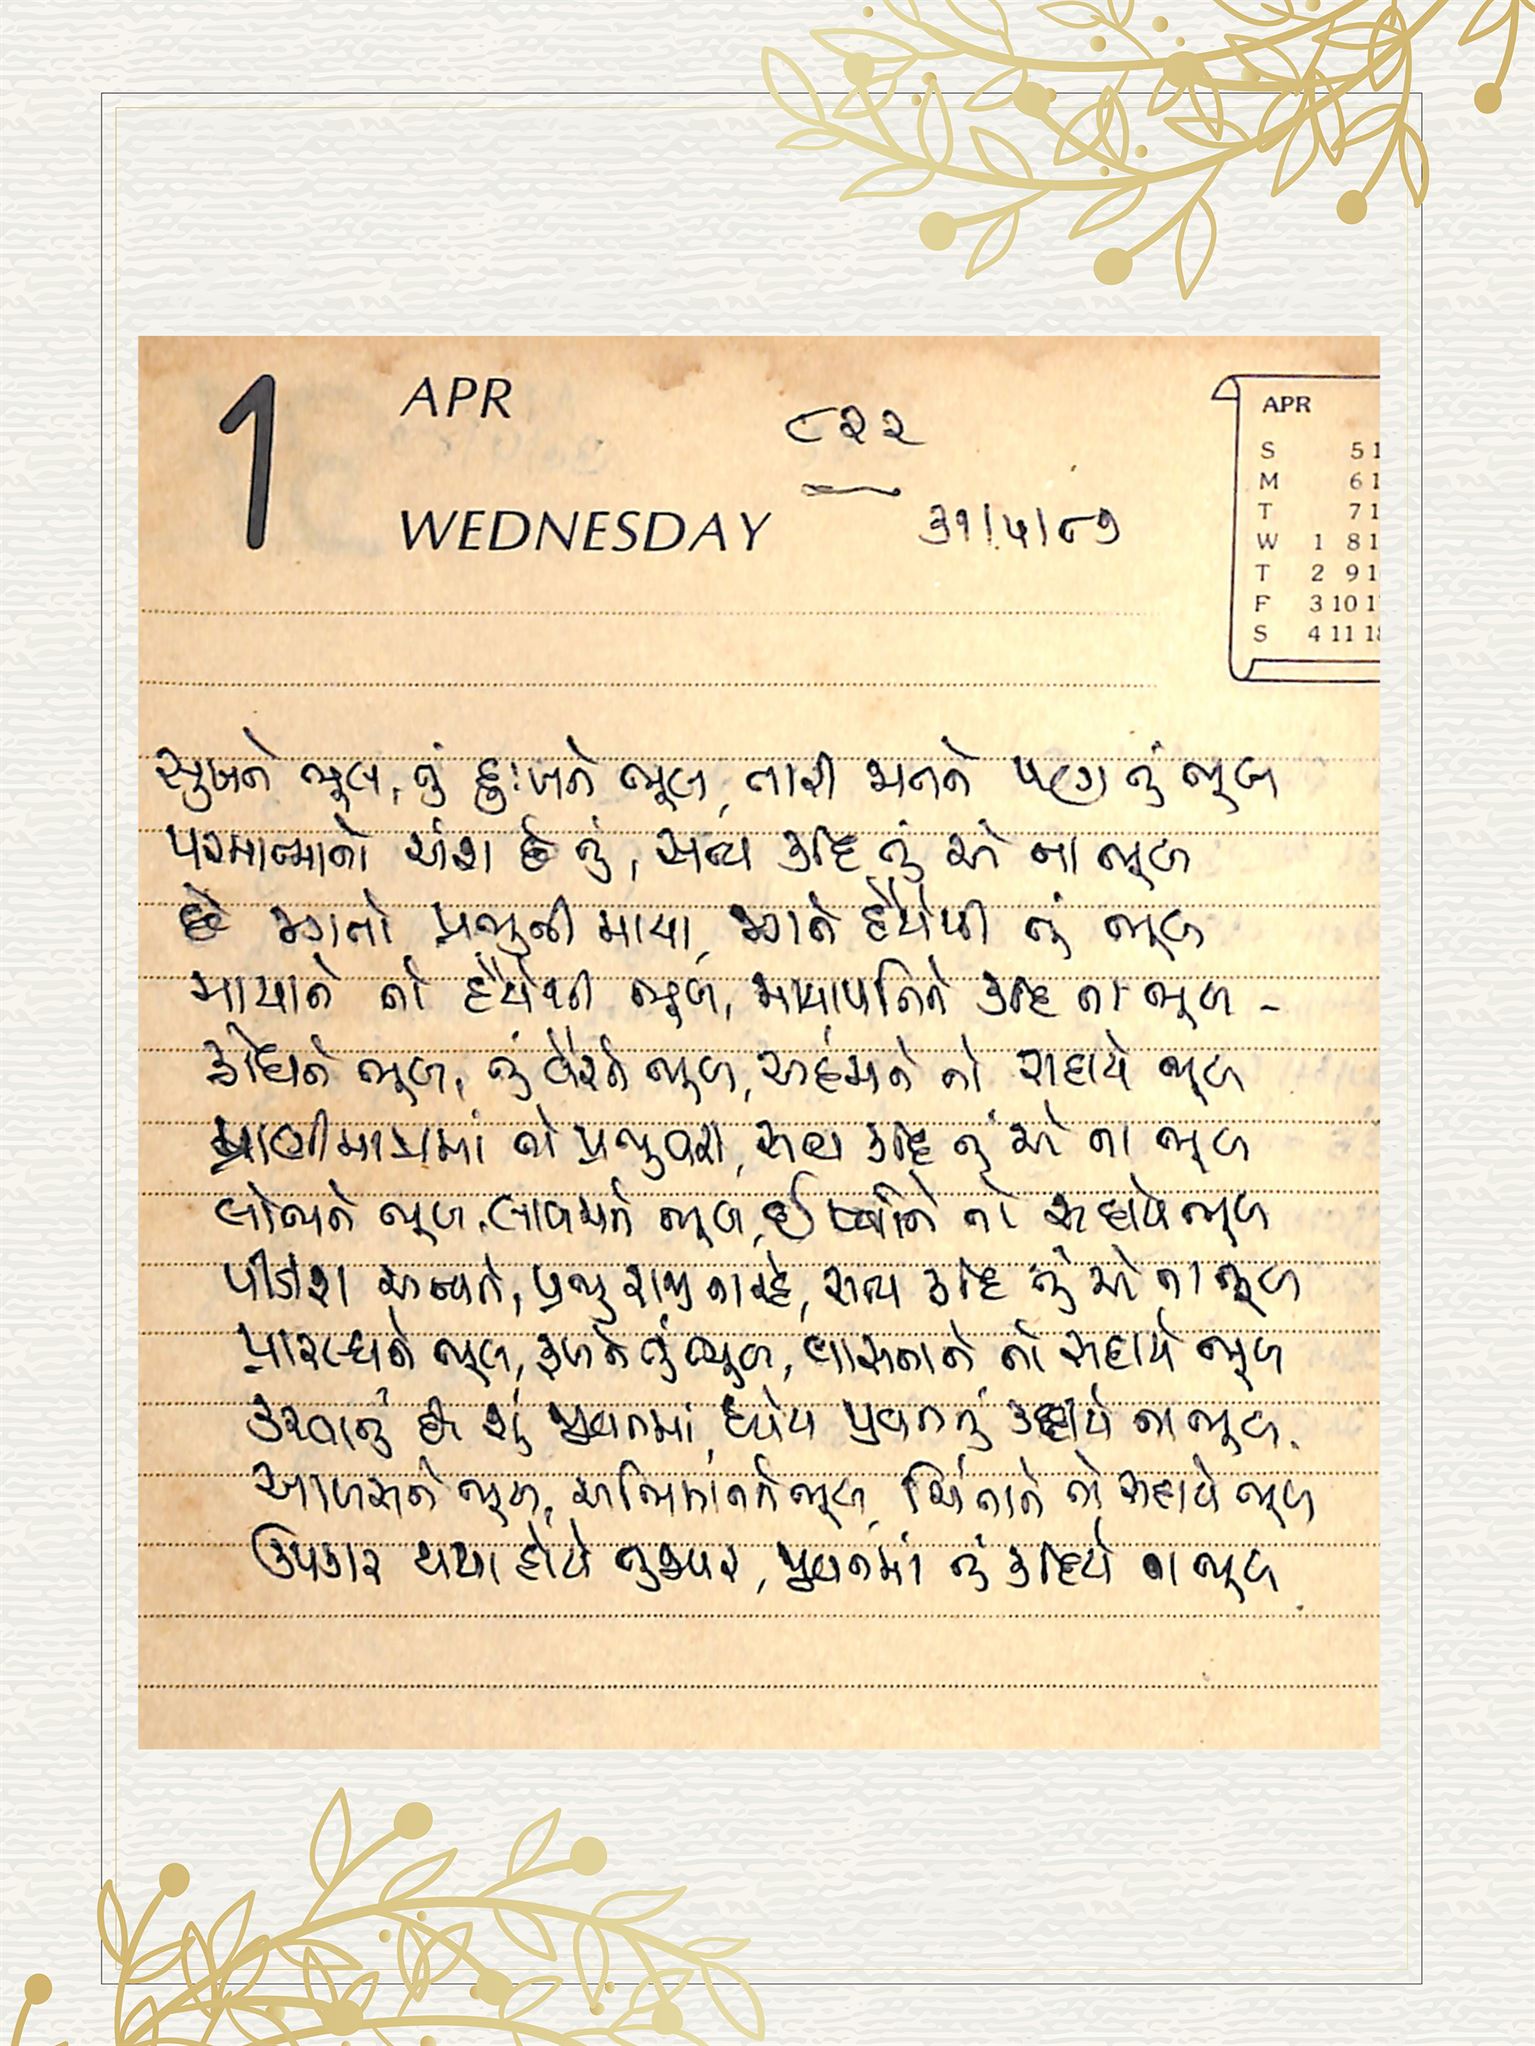 1 APR ૮૨૨
WEDNESDAY ૩૧/૫/૮૭
APR
S 5 1
M 6 1
T 7 1
W 1 8 1
T 2 9 1
F 3 10 1
S 4 11 18
સુખને ભૂલ, તું દુઃખને ભૂલ, તારી મનને પણ તું ભૂલ
પરમાત્માનો અંશ છે તું, સત્ય કદિ તું એ ના ભૂલ
છે જગતો પ્રભુની માયા, જગને હૈયેથી તું ભૂલ
માયાને તો હૈયેથી ભૂલ, માયાપતિને કદિ ના ભૂલ -
ક્રોધને ભૂલ, તું વૈરને ભૂલ, અહંમને તો સદાયે ભૂલ
પ્રાણીમાત્રમાં તો પ્રભુ વસે, સત્ય કદિ તું એ ના ભૂલ
લોભને ભૂલ, લાલચને ભૂલ, ઈર્ષ્યાને તો સદાયે ભૂલ
પીડીશ અન્યને, પ્રભુ રાજી ના રહે, સત્ય કદિ તું એ ના ભૂલ
પ્રારબ્ધને ભૂલ, ફળને તું ભૂલ, વાસનાને તો સદાયે ભૂલ
કરવાનું છે શું જીવનમાં, ધ્યેય જીવનનું કદીયે ના ભૂલ.
આળસને ભૂલ, અભિમાનને ભૂલ, ચિંતાને તો સદાયે ભૂલ
ઉપકાર થયા હોયે તુજ પર, જીવનમાં તું કદિયે ના ભૂલ